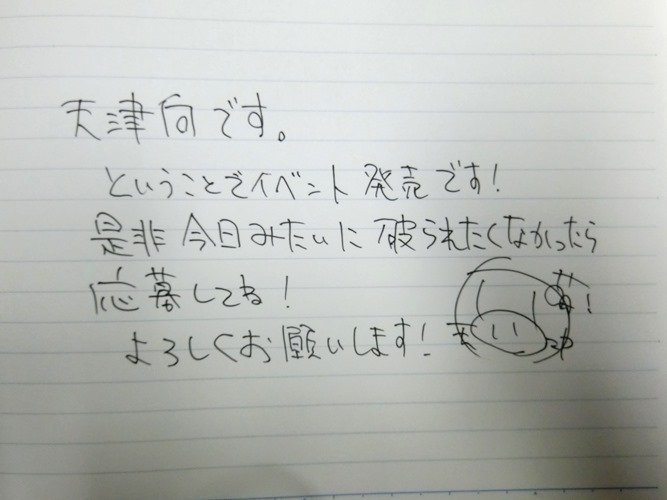 天津向です。
ということでイベント発売です!
是非今日みたいに破られたくなかったら
応募してね!
よろしくお願いします!